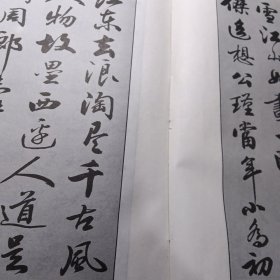 雪江山如畫
傑遥想公瑾當年小喬初
江东去浪淘尽千古風
人物故垒西边人道是
周郎